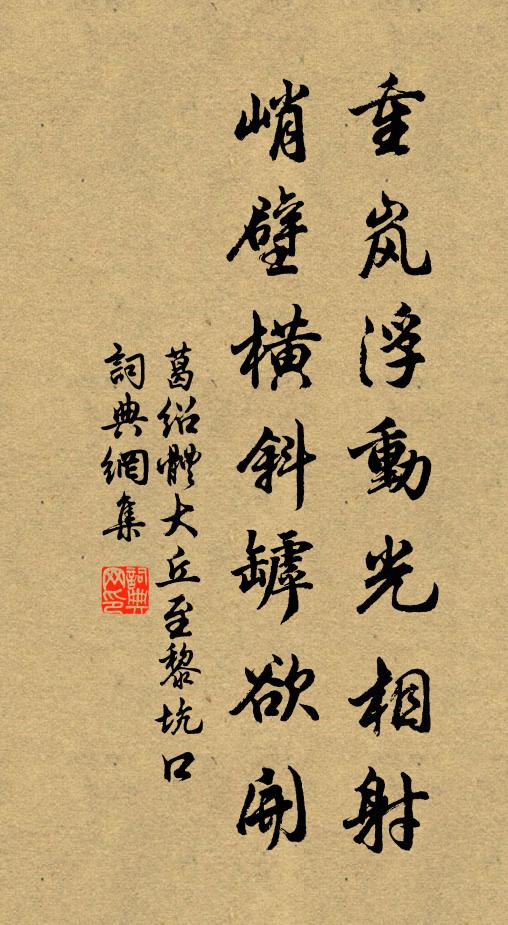 重岚浮動光相射
峭壁橫斜罅欲開
葛紹體大丘至黎坑口
詞典網集
詞典网印